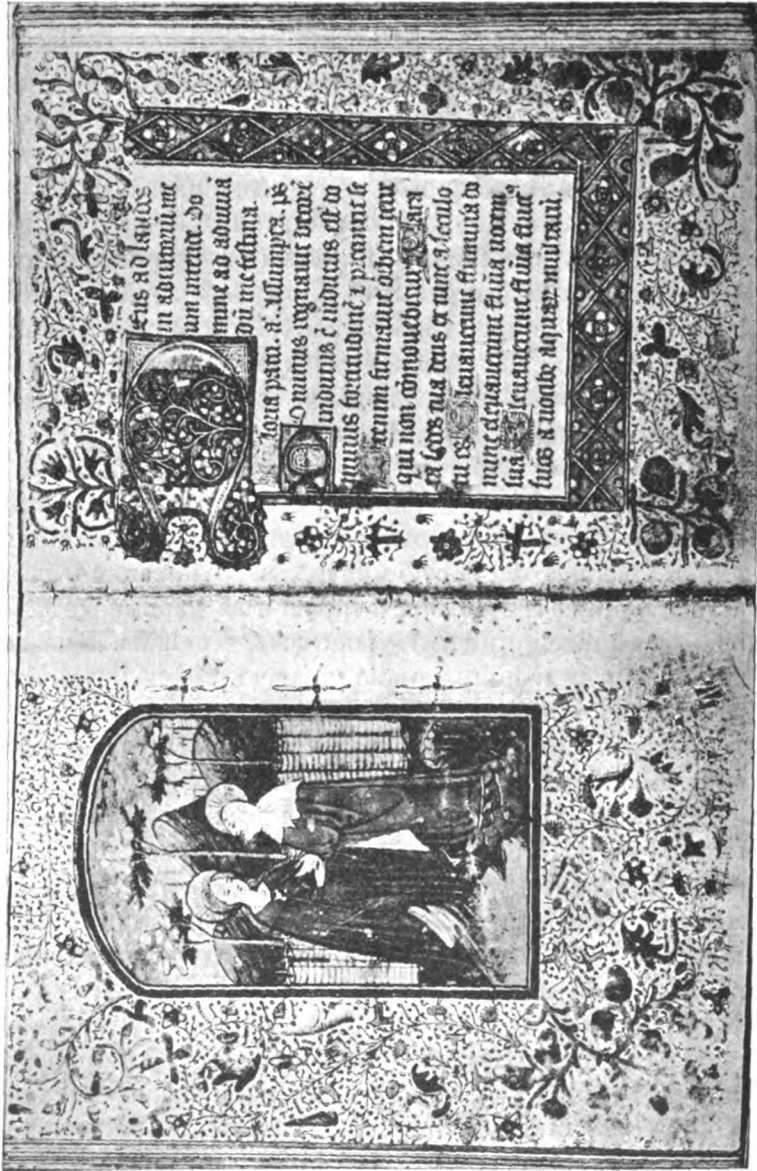 eus ad laudes
in adiutoriũ me
um intende Do
mine ad adiuuã
dũ me festina
loria patri. ã. Assumpta. p̃s
Dominus regnauit decorẽ
indutus ẽ indutus est do
minus fortitudinẽ ⁊ precinxit se
tenim firmauit orbem terre
qui non cõmouebitur Para
ta sedes tua deus ex tunc a seculo
tu es Eleuauerunt flumina do
mine eleuauerunt flũia uocem
suã Eleuauerunt flũia fluct⁹
suos a uocibꝫ aquaꝝ multaꝝ.